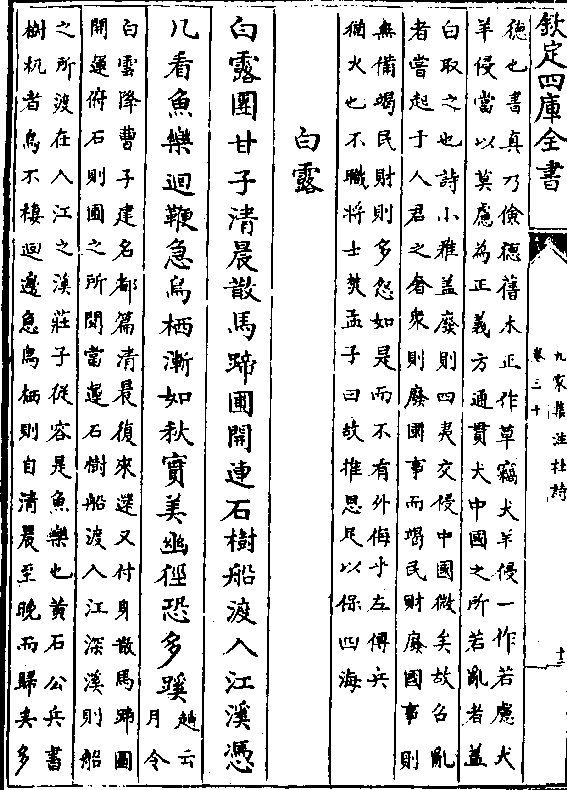 欽定四庫全書
九家集注杜詩
卷三十
十三
德也書真乃儉德舊木正作草竊犬羊侵一作若慮犬
羊侵當以莫慮為正義方通貫犬中國之所若亂者蓋
白取之也詩小雅盡廢則四夷交侵中國微矣故召亂
者當起于人君之奢衆則廢國事而竭民財廢國事則
無備竭民財則多怨如是而不有外侮乎左傳兵
猶火也不職將士焚孟子曰故推恩足以保四海
白露
白露團甘子清晨散馬蹄圃開連石樹船渡入江溪憑
几看魚樂迴鞭急鳥栖漸如秋實美幽徑恐多蹊趙云
月令
白雲降曹子建名都篇清晨復來還又付身散馬蹄圃
開運俯石則圃之所開當連石樹船渡入江深溪則船
之所渡在入江之溪莊子從容是魚樂也黄石公兵書
樹杌者鳥不棲迴邊急鳥栖則自清晨至晚而歸矣多